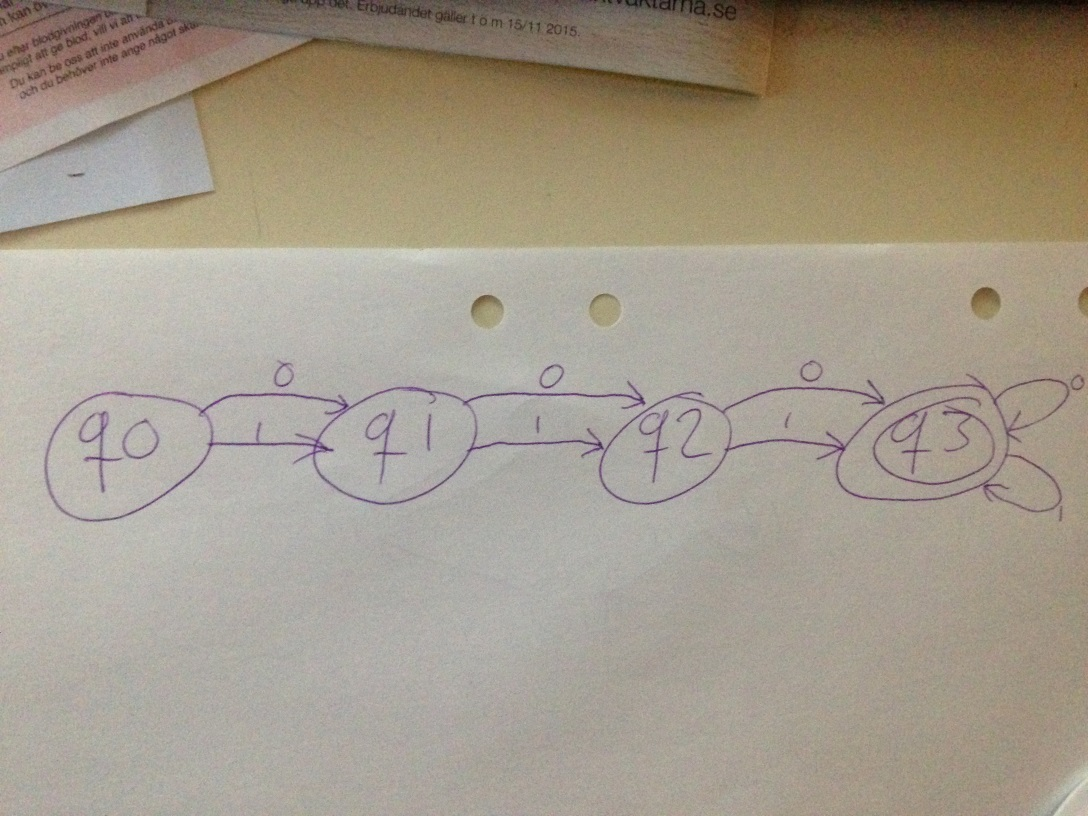 u efter blodgivningen
mpligt att ge blod, vill vi att
Du kan be oss att inte använda
och du behöver inte ange något
Erbjudandet gäller t o m 15/11 2015.
0 0 0 0
1 1 1
q0 q1 q2 q3
1